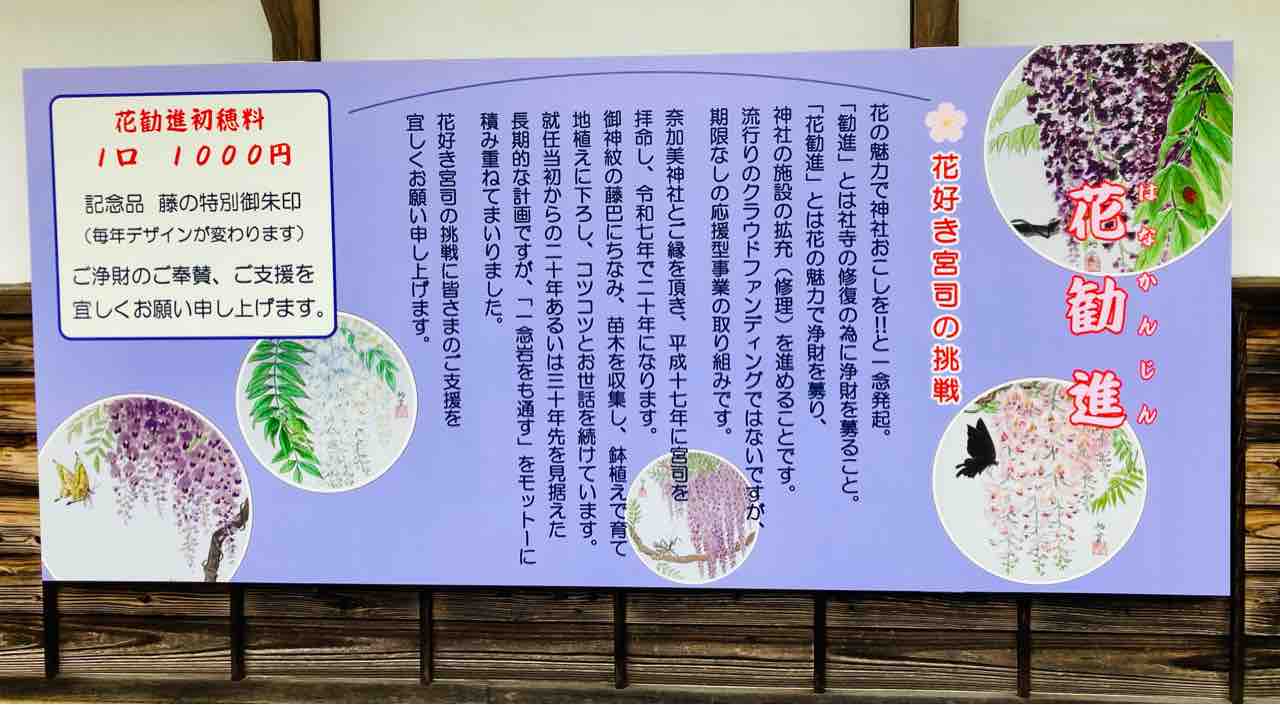 花勧進
はなかんじん
花好き宮司の挑戦
花の魅力で神社おこしを!!と一念発起。
「勧進」とは社寺の修復の為に浄財を募ること。
「花勧進」とは花の魅力で浄財を募り、
神社の施設の拡充（修理）を進めることです。
流行りのクラウドファンディングではないですが、
期限なしの応援型事業の取り組みです。
奈加美神社とご縁を頂き、平成十七年に宮司を
拝命し、令和七年で二十年になります。
御神紋の藤巴にちなみ、苗木を収集し、鉢植えで育て
地植えに下ろし、コツコツとお世話を続けています。
就任当初からの二十年あるいは三十年先を見据えた
長期的な計画ですが、「一念岩をも通す」をモットーに
積み重ねてまいりました。
花好き宮司の挑戦に皆さまのご支援を
宜しくお願い申し上げます。
花勧進初穂料
1口 1000円
記念品 藤の特別御朱印
（毎年デザインが変わります）
ご浄財のご奉賛、ご支援を
宜しくお願い申し上げます。